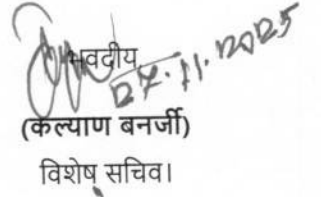 भवदीय
27.11.2025
(कल्याण बनर्जी)
विशेष सचिव।